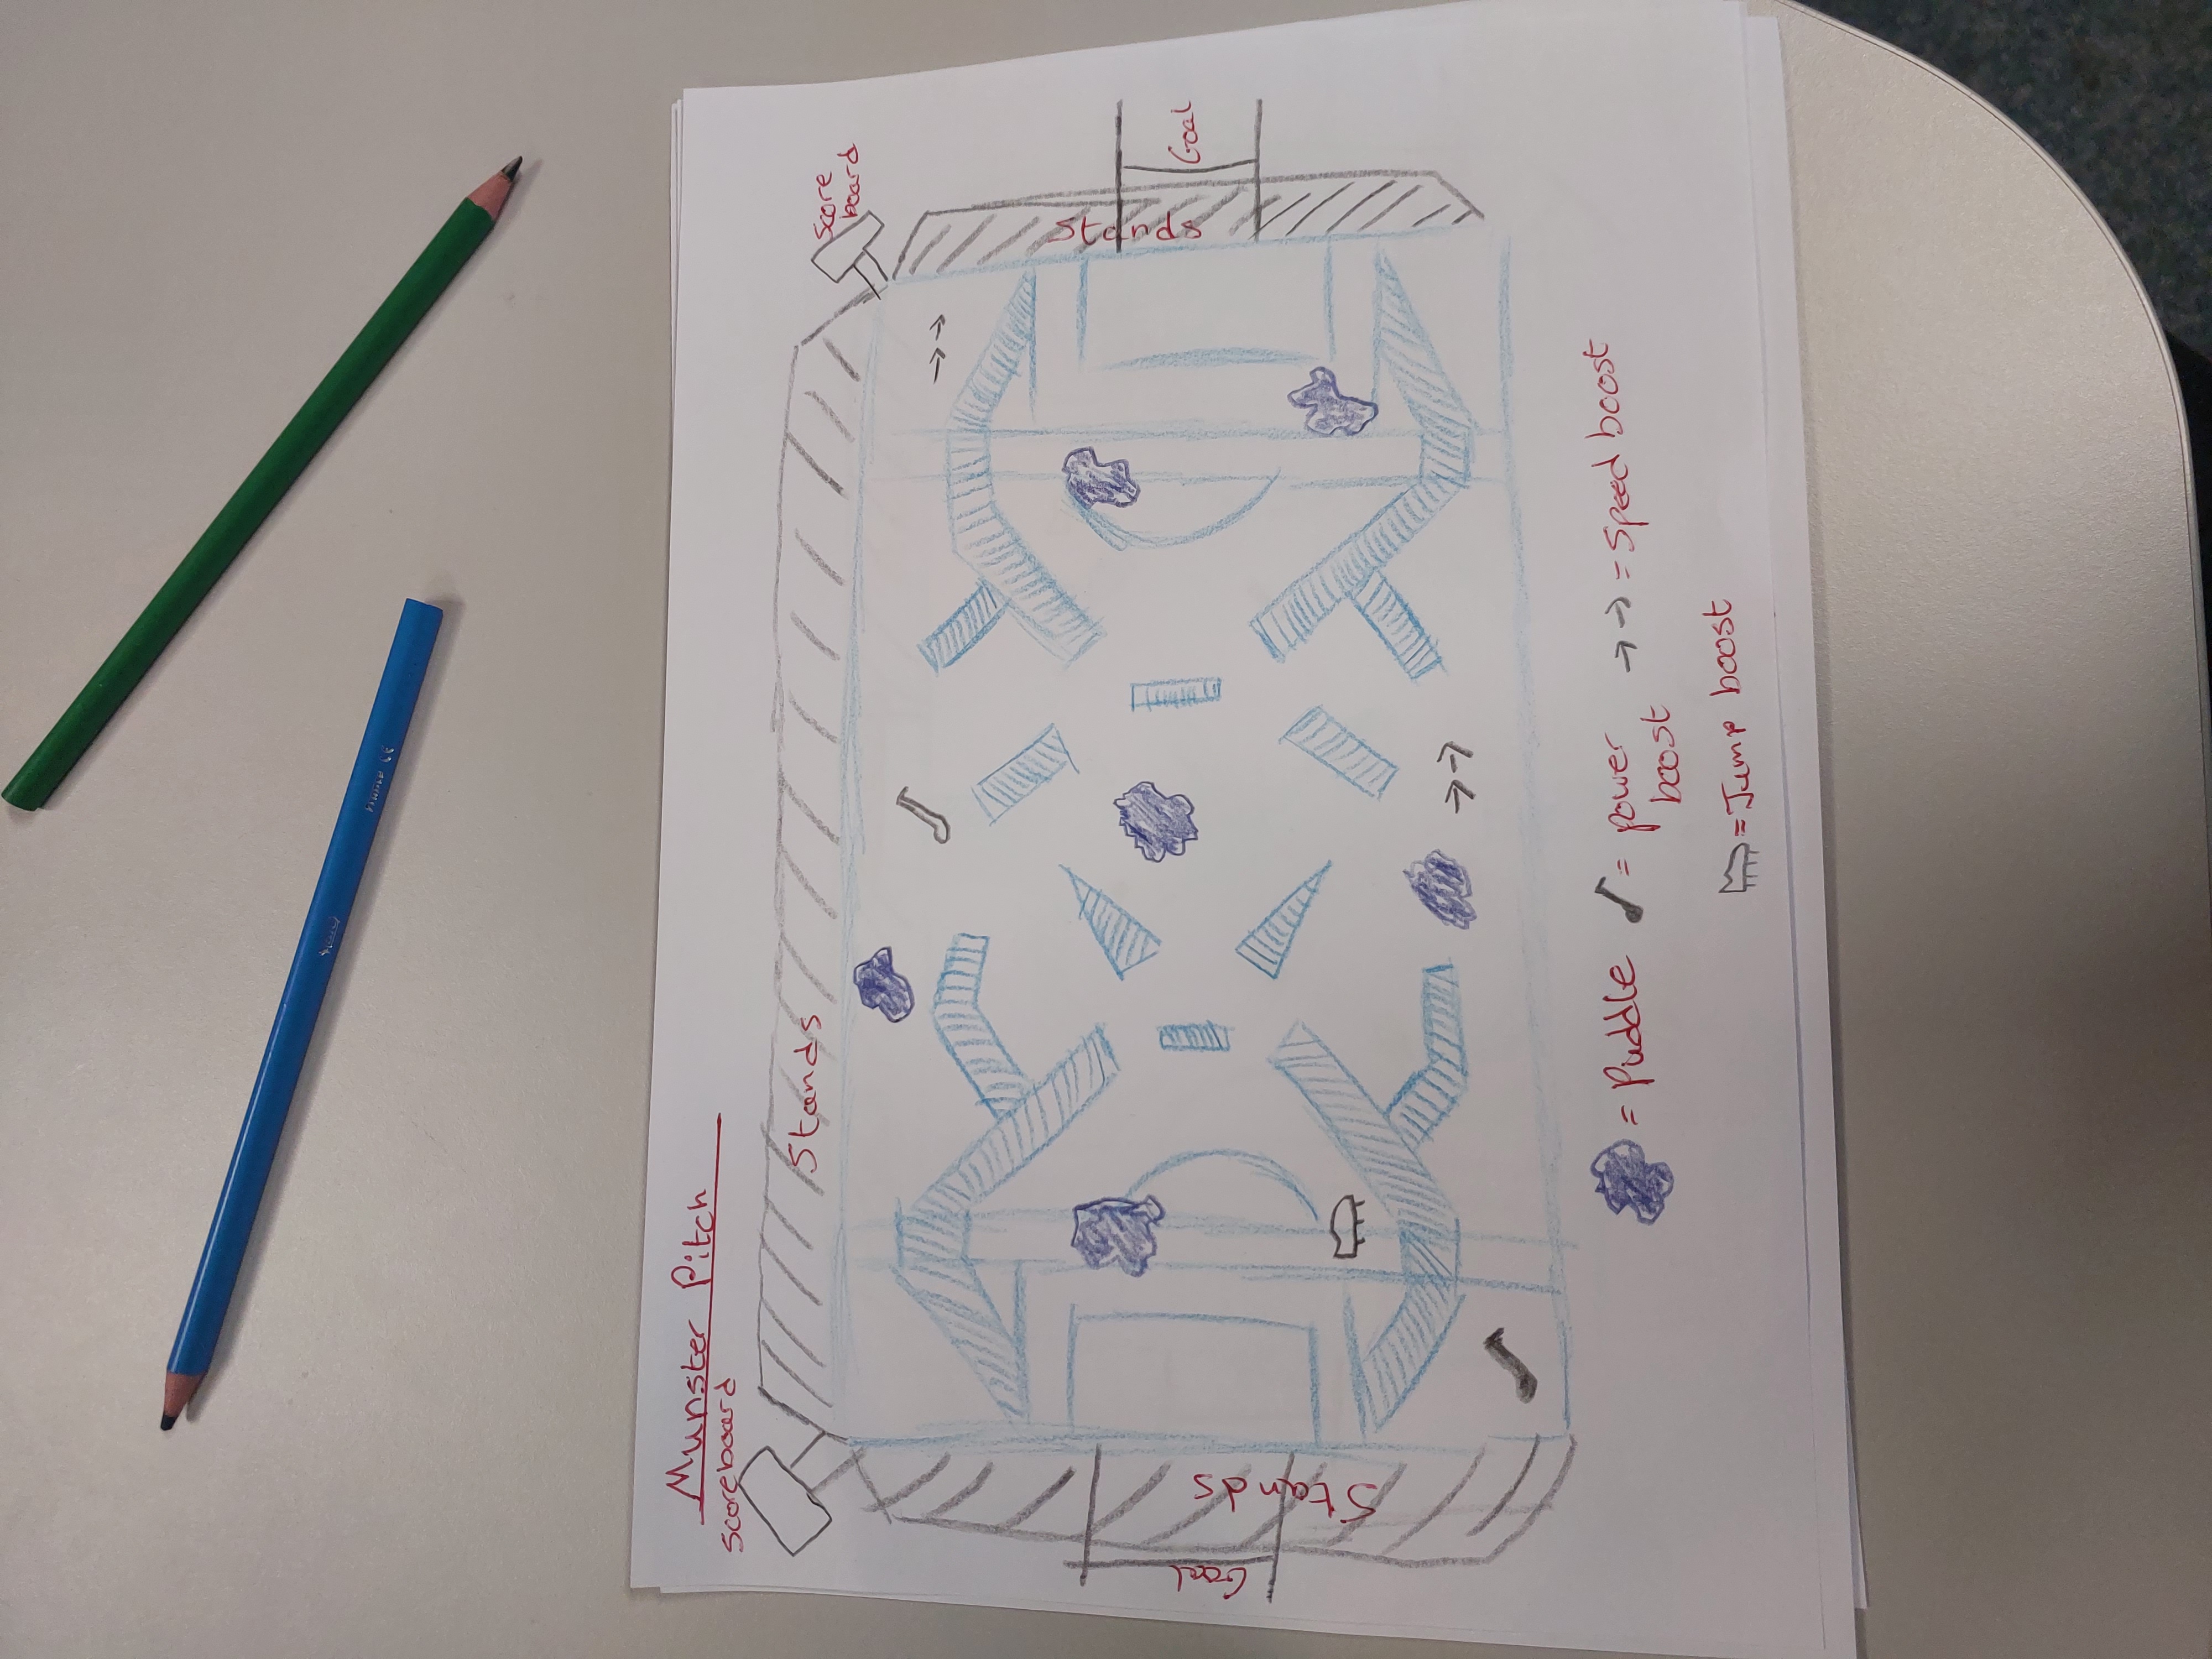 Munster Pitch
Scoreboard
Stands
Score
board
Goal
Stands
Stands
Goal
= Puddle
= power
boost
= Speed boost
= Jump boost